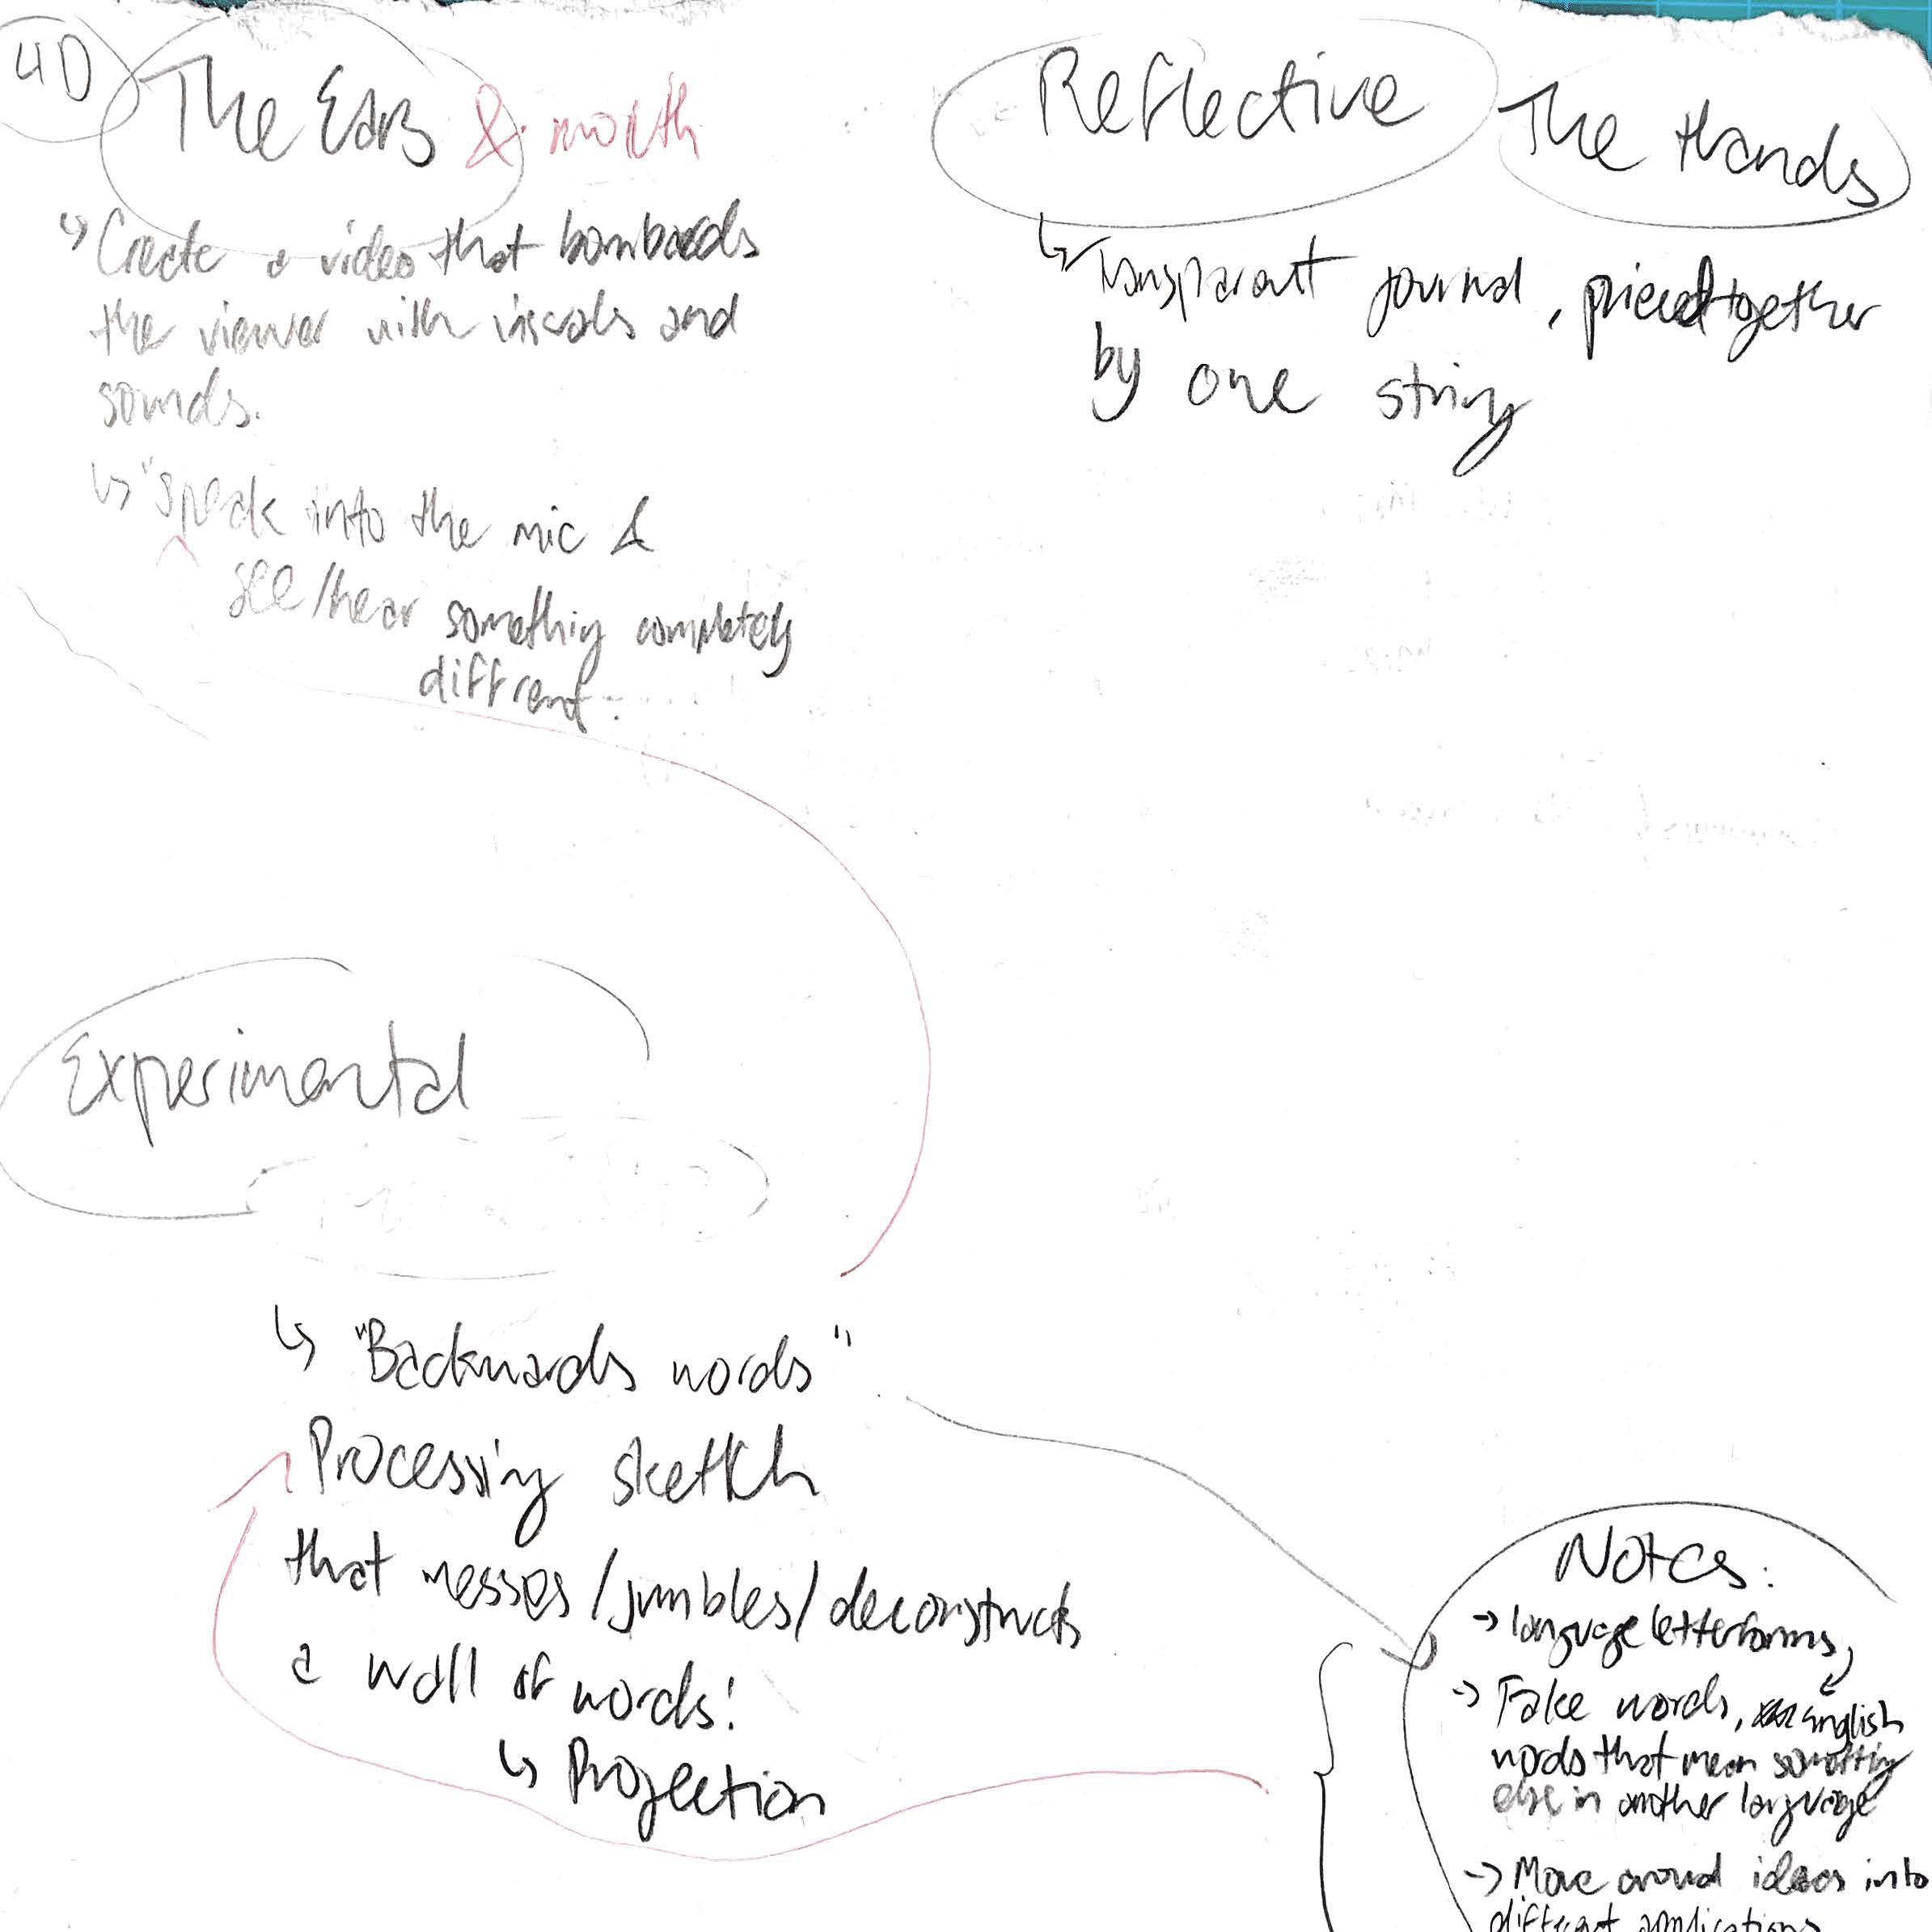 4D
The Ears & mouth
↳ Create a video that bombards
the viewer with visuals and
sounds.
↳ "speak into the mic &
see/hear something completely
diffrent.
Reflective
The Hands
↳ Transparent journal, pieced together
by one string
Experimental
↳ "Backwards words"
Processing sketch
that messes/jumbles/deconstructs
a wall of words!
↳ Projection
Notes:
→ language letterforms,
→ Fake words, english
words that mean something
else in another language
→ Move around ideas into
different applications